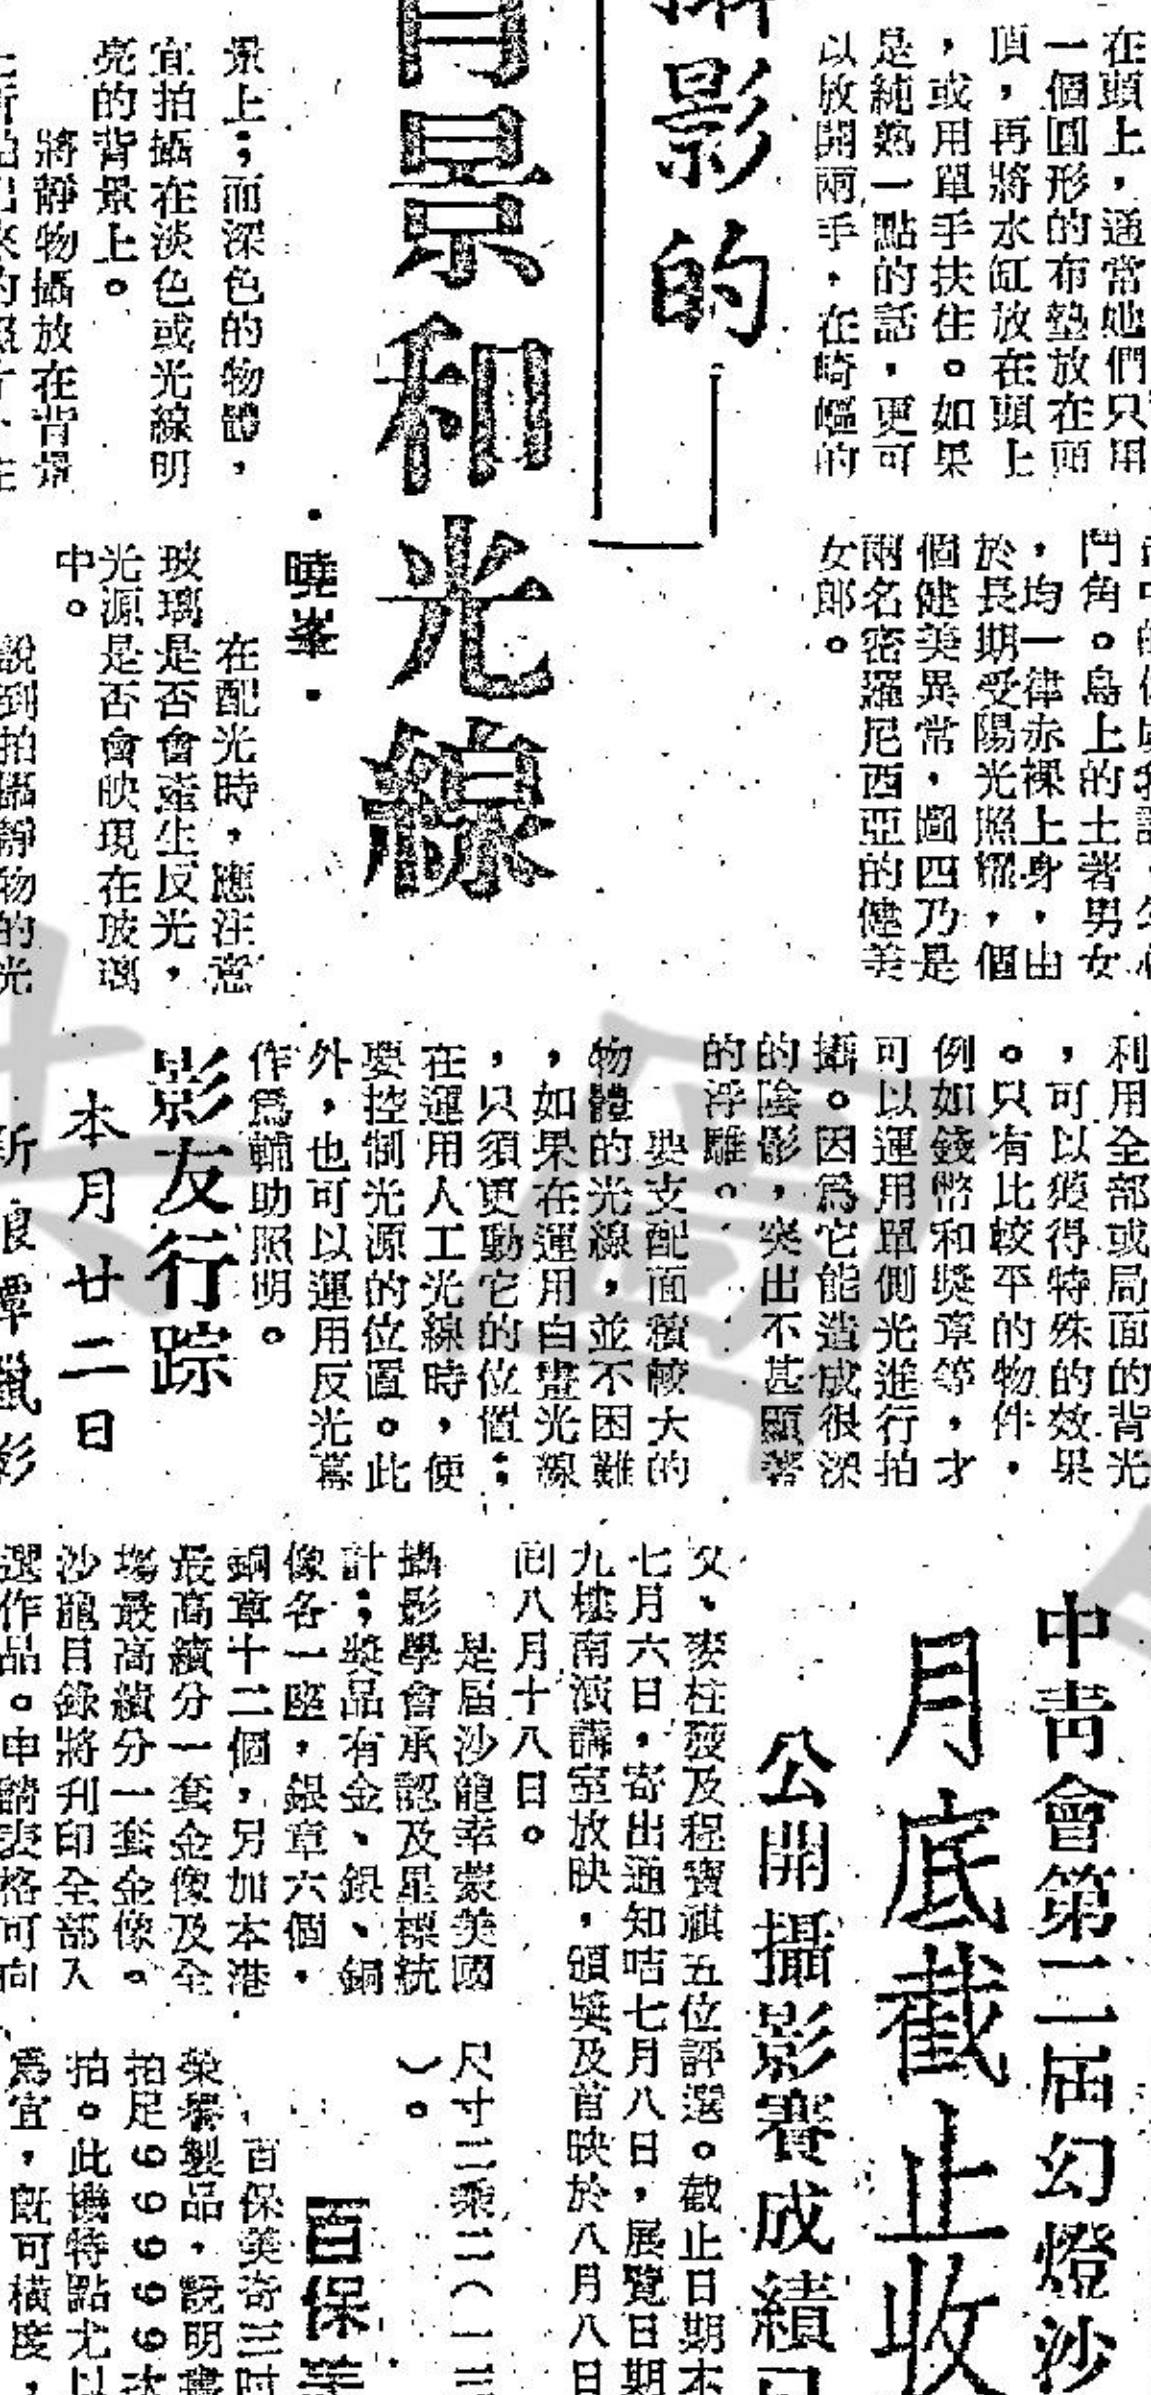 在頭上，通常她們只用
一個圓形的布墊放在頭
頂，再將水缸放在頭上
，或用單手扶住。如果
是純熟一點的話，更可
以放開兩手，在崎嶇的
鬥角。島上的土著男女
，均一律赤裸上身，由
於長期受陽光照耀，個
個健美異常，圖四乃是
兩名密羅尼西亞的健美
女郎。
影的
背景和光線
·曉峯·
景上；而深色的物體，
宜拍攝在淡色或光線明
亮的背景上。
將靜物攝放在背景
在配光時，應注意
玻璃是否會產生反光，
光源是否會映現在玻璃
中。
說到拍攝靜物的光
利用全部或局面的背光
，可以獲得特殊的效果
。只有比較平的物件，
例如錢幣和獎章等，才
可以運用單側光進行拍
攝。因爲它能造成很深
的陰影，突出不甚顯著
的浮雕。
要支配面積較大的
物體的光線，並不困難
，如果在運用白晝光線
，只須更動它的位置；
在運用人工光線時，便
要控制光源的位置。此
外，也可以運用反光幕
作爲輔助照明。
影友行踪
本月廿二日
中青會第二屆幻燈沙
月底截止收
公開攝影賽成績
文、麥柱發及程寶祺五位評選。截止日期本
七月六日，寄出通知咭七月八日，展覽日期
九樓南演講室放映，頒獎及首映於八月八日
間八月十八日。
是屆沙龍幸蒙美國
攝影學會承認及星標統
計；獎品有金、銀、銅
像各一座，銀章六個，
銅章十二個，另加本港
最高績分一套金像及全
場最高績分一套金像。
沙龍目錄將刊印全部入
選作品。申請表格可向
尺寸二乘二（一三
）。
百保美
百保美奇三時
榮譽製品，說明書
拍足６６６６６次
拍。此機特點尤以
爲宜，旣可橫度，